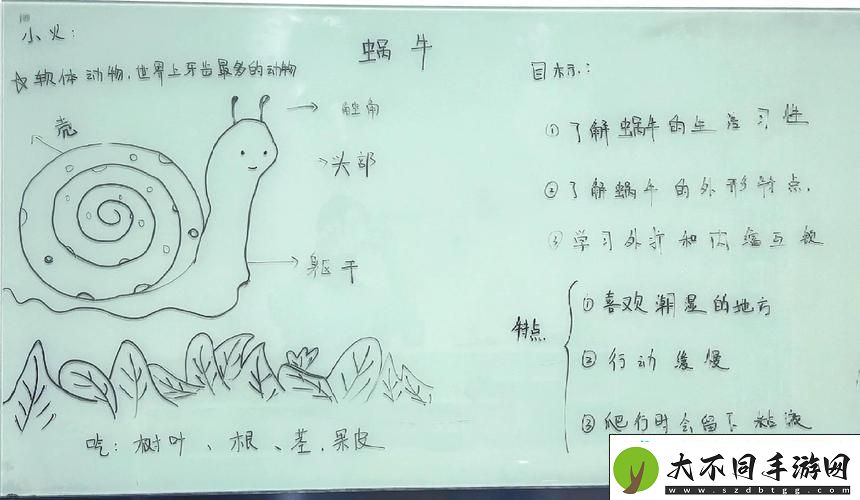 小火：
蜗牛
☆软体动物，世界上牙齿最多的动物
壳
触角
头部
躯干
吃：树叶、根、茎，果皮
目标：
①了解蜗牛的生活习性
②了解蜗牛的外形特点.
③学习外折和内缩互
特点
①喜欢潮湿的地方
②行动缓慢
③爬行时会留下粘液
大不同手游网
www.szdbtgg.com